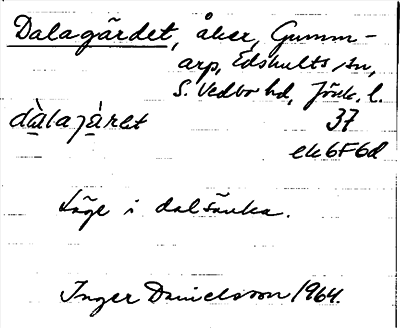 Dalagärdet, åker, Gumm-
arp, Edshults sn,
S. Vedbo hd, Jönk. l.
dàlajä̀ret 37
ek 6F6d
Läge i dalsänka.
Inger Danielsson 1964.